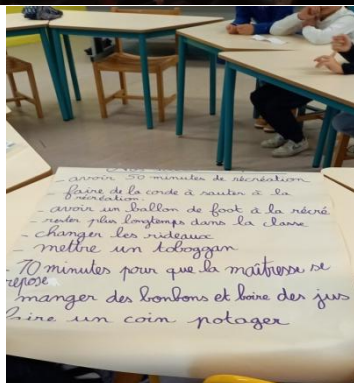 - avoir 50 minutes de récréation
- faire de la corde à sauter à la
récréation.
- avoir un ballon de foot à la récré
- rester plus longtemps dans la classe
- changer les rideaux
- mettre un toboggan
- 70 minutes pour que la maîtresse se
repose
manger des bonbons et boire des jus
faire un coin potager